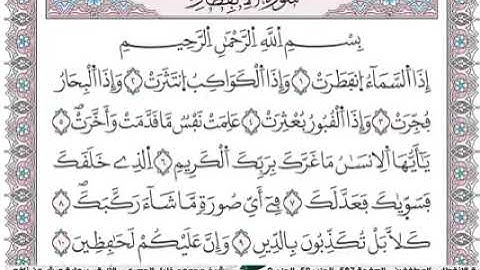 سُورَةُ الاِنفِطَارِ
بِسْمِ اِللَّهِ اِلرَّحْمَٰنِ اِلرَّحِيمِ
إِذَا اَلسَّمَآءُ اُ۪نفَطَرَتْ ١ وَإِذَا اَلْكَوَاكِبُ اُ۪نتَثَرَتْ ٢ وَإِذَا اَلْبِحَارُ
فُجِّرَتْ ٣ وَإِذَا اَلْقُبُورُ بُعْثِرَتْ ٤ عَلِمَتْ نَفْسٌ مَّا قَدَّمَتْ وَأَخَّرَتْ ٥
يَٰٓأَيُّهَا اَلِانسَٰنُ مَا غَرَّكَ بِرَبِّكَ اَلْكَرِيمِ ٦ اِلذِے خَلَقَكَ
فَسَوّ۪يٰكَ فَعَدَّلَكَ ٧ فِے أَيِّ صُورَةٍ مَّا شَآءَ رَكَّبَكَ ٨
كَلَّا بَلْ تُكَذِّبُونَ بِالدِّينِ ٩ وَإِنَّ عَلَيْكُمْ لَحَٰفِظِينَ ١٠